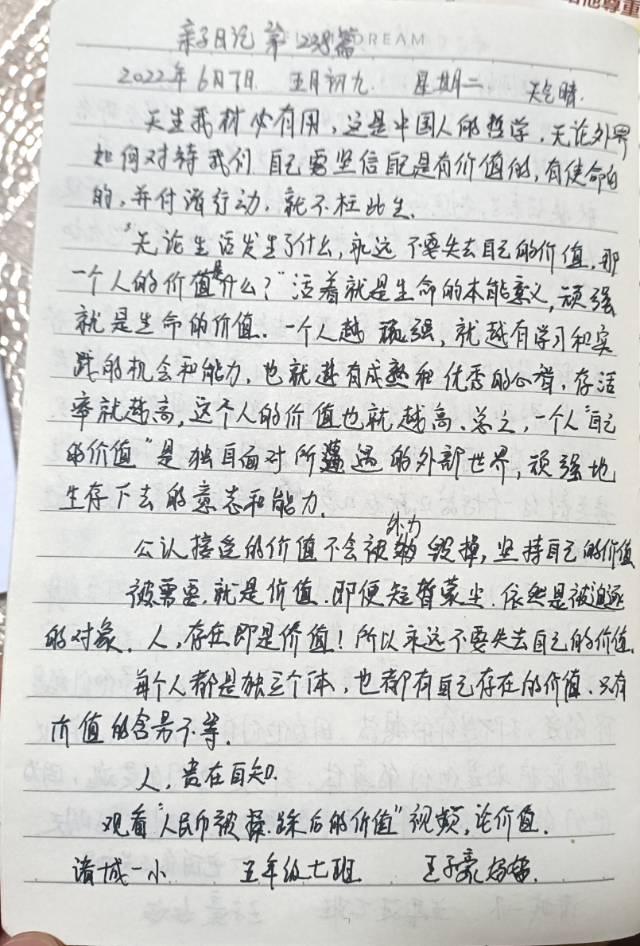 他尊重
DREAM
亲子日记 第 238篇
2022年6月7日 五月初九 星期二 天气晴
天生我材必有用，这是中国人的哲学，无论外界
如何对待我们 自己要坚信自己是有价值的，有使命的
的，并付诸行动，就不枉此生。
"无论生活发生了什么，永远不要失去自己的价值，那
一个人的价值是什么？"活着就是生命的本能意义，顽强
就是生命的价值。一个人越顽强，就越有学习和实
践的机会和能力，也就越有成熟和优秀的心智，存活
率就越高，这个人的价值也就越高、总之，一个人"自己
的价值"是独自面对所遭遇的外部世界，顽强地
生存下去的意志和能力。
公认接受的价值不会被外力毁掉，坚持自己的价值
被需要，就是价值．即便短暂蒙尘．依然是被追逐
的对象．人，存在即是价值！所以永远不要失去自己的价值。
每个人都是独立个体，也都有自己存在的价值．只有
价值的含量不等．
人，贵在自知．
观看"人民币被揉．踩后的价值"视频，论价值．
诸城一小 五年级七班 王子豪妈妈．